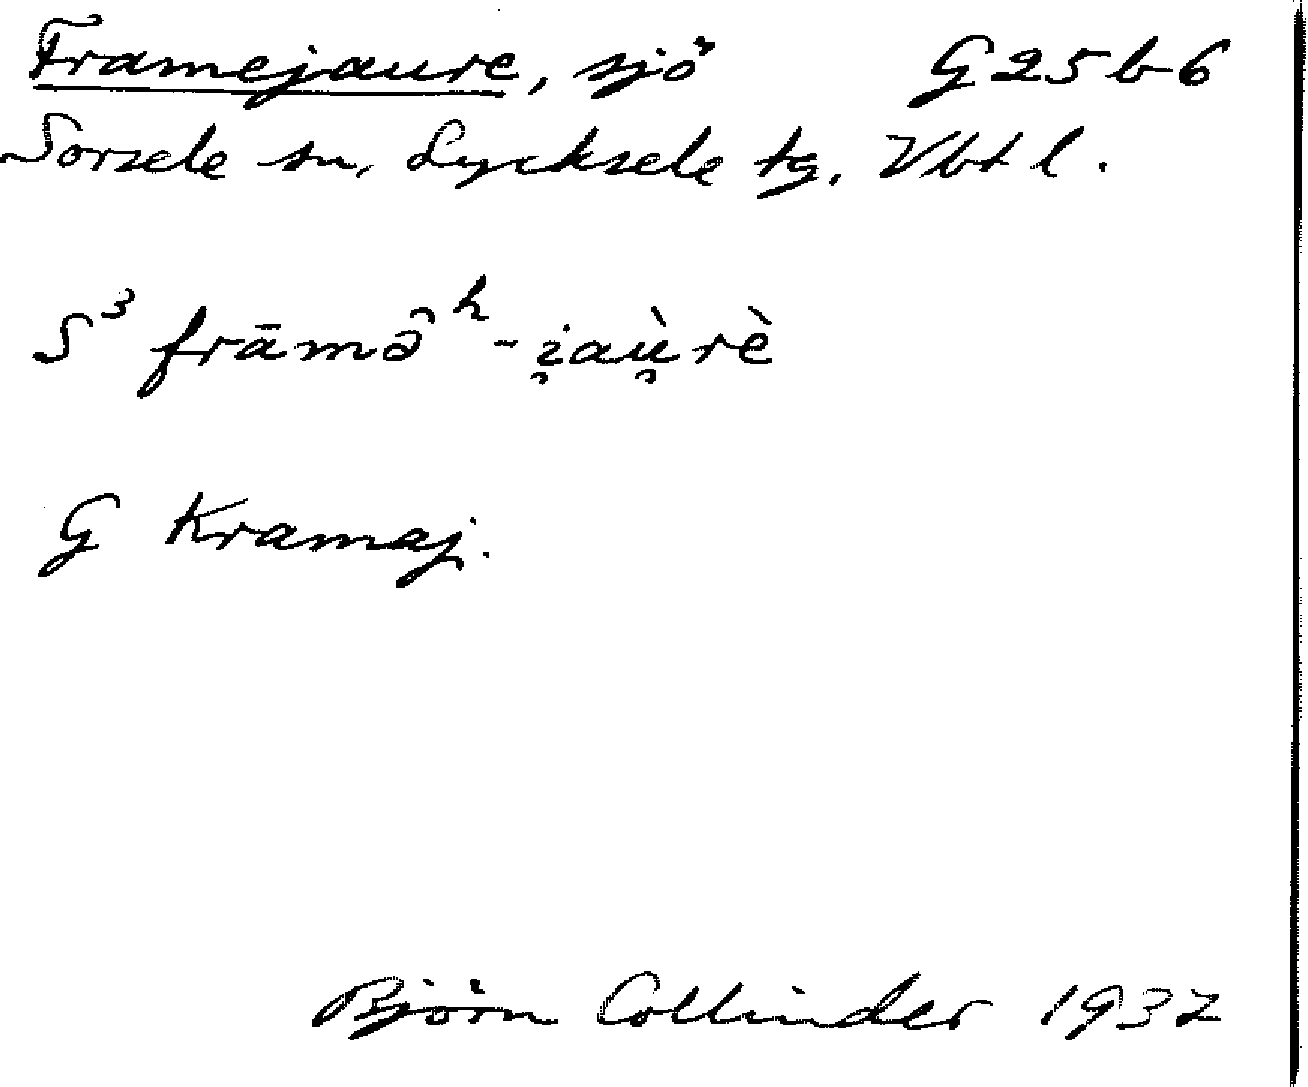 Framejaure, sjö G25b6
Sorsele sn, Lycksele tg, Vbtl.
S³ frāmə̂ʰ-i̯aù̯rè
G Kramaj.
Björn Collinder 1937